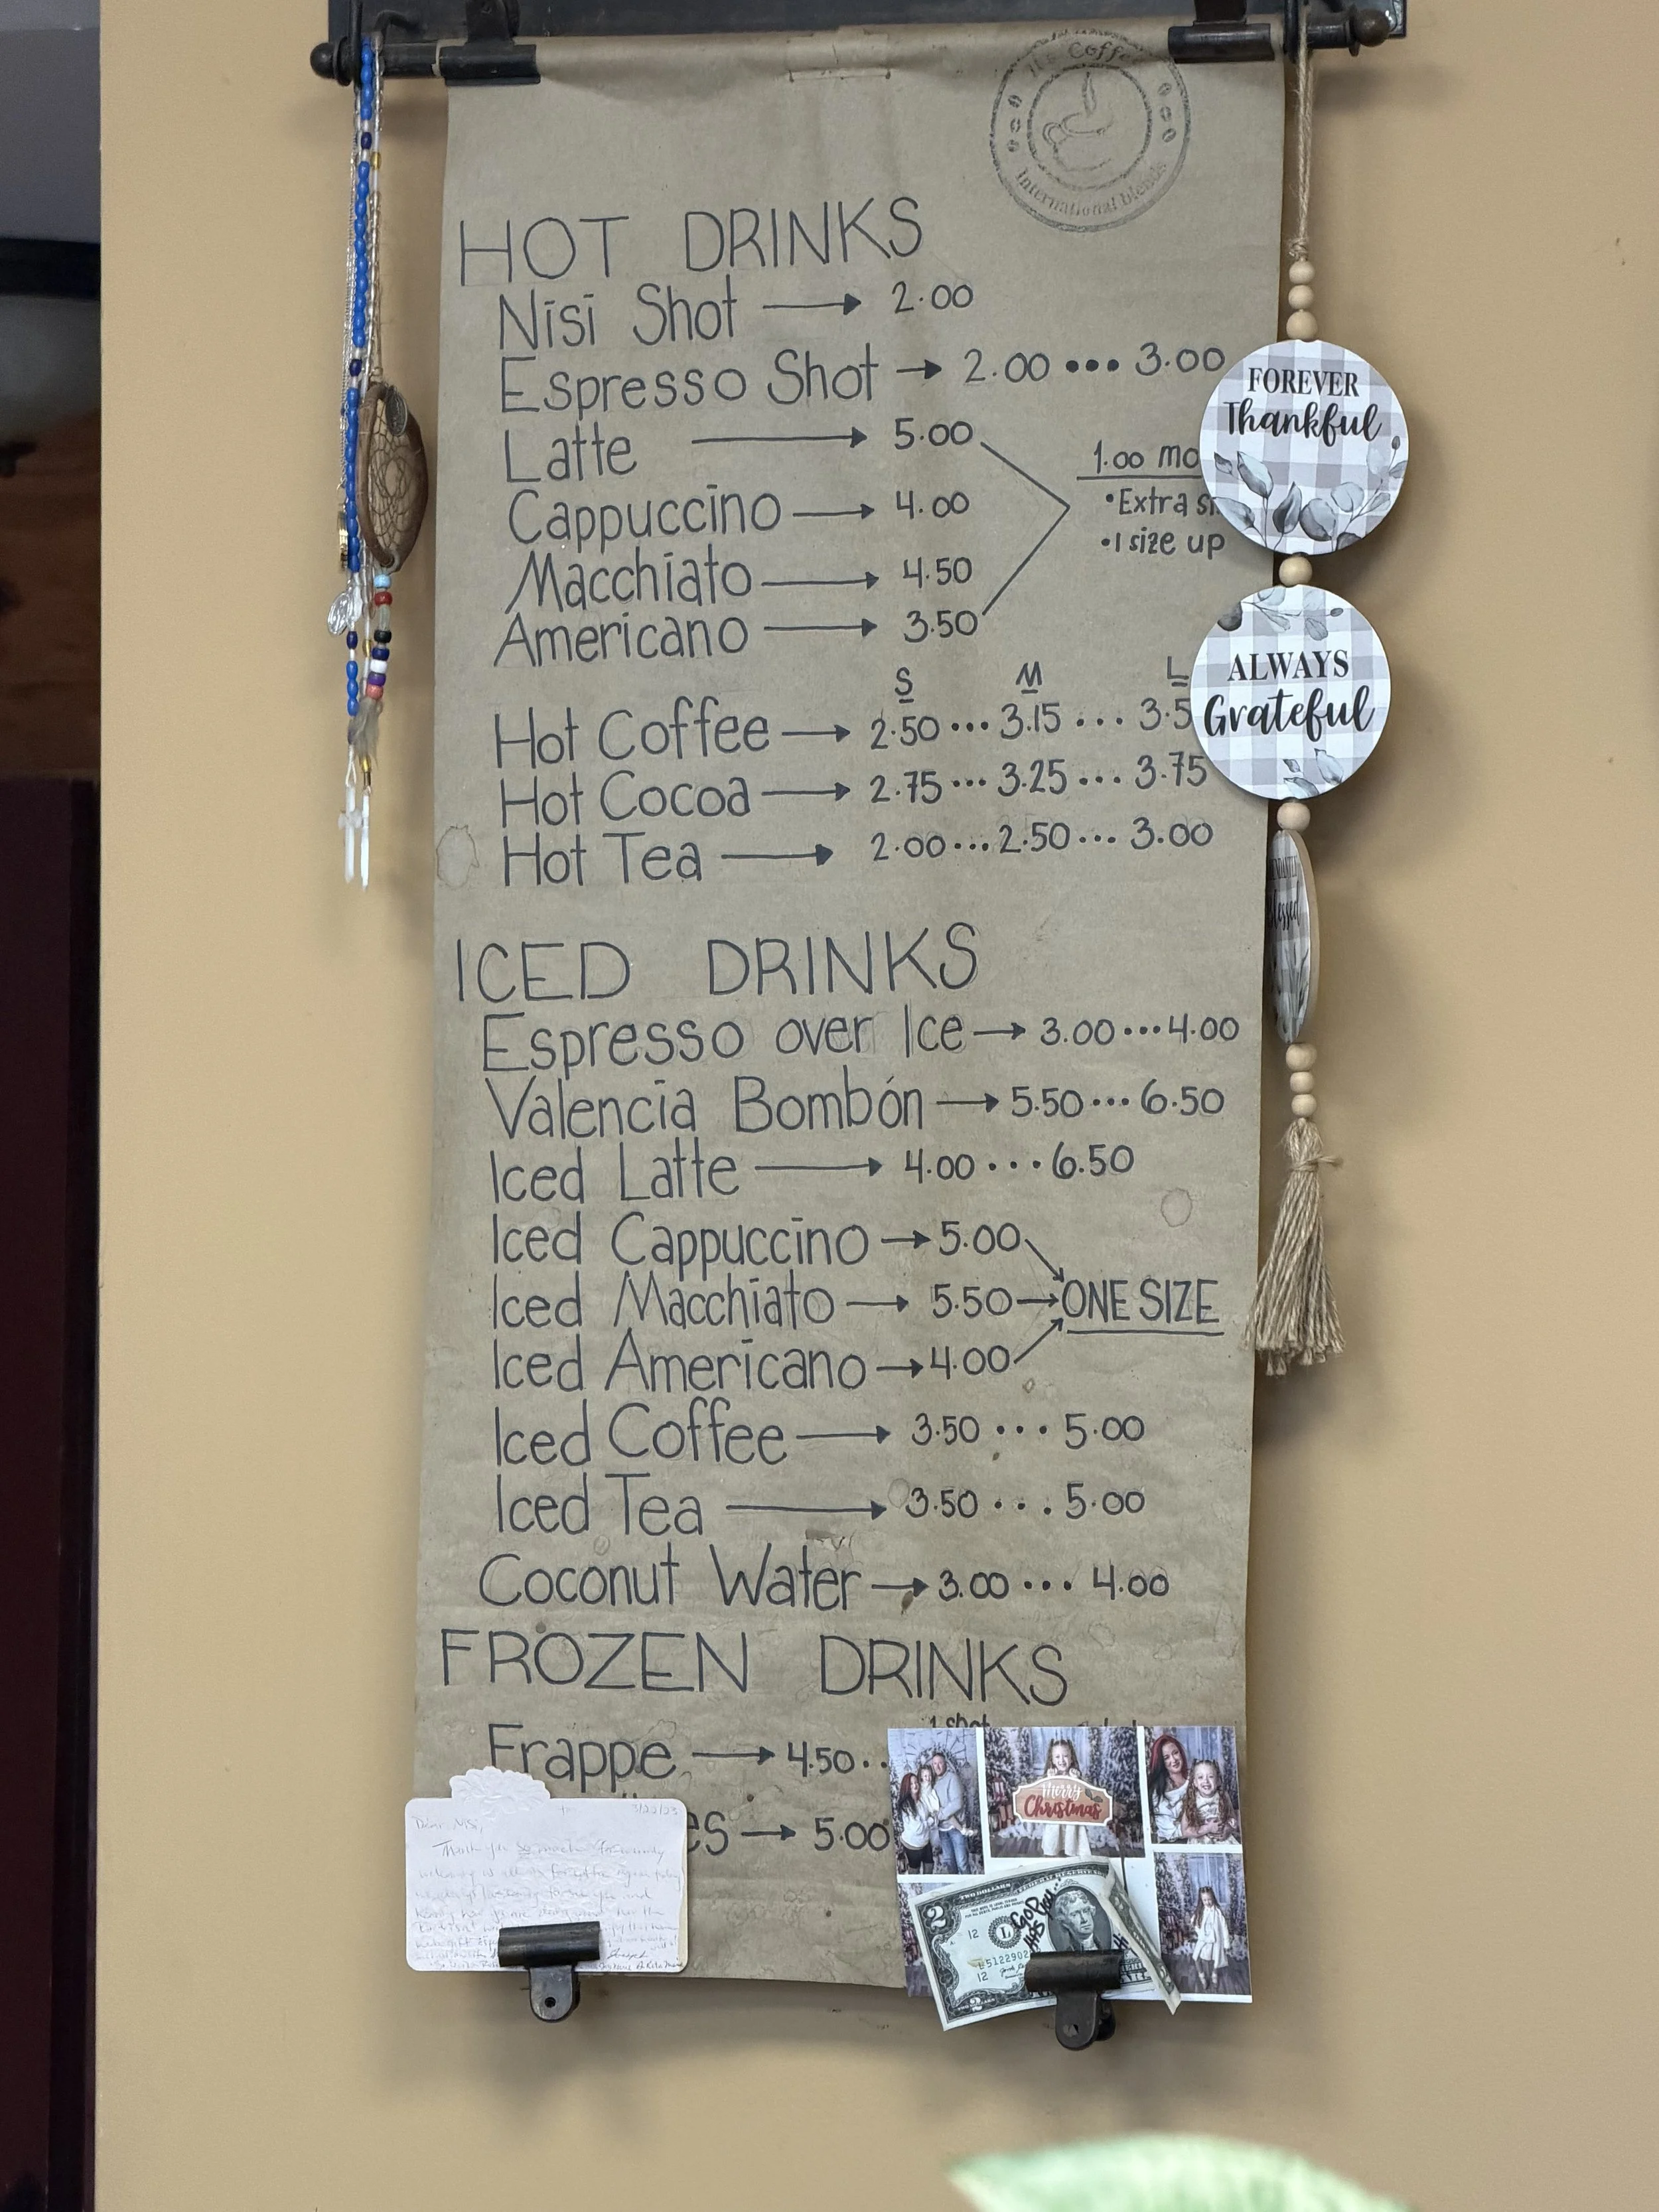 Coffee
International blends
HOT DRINKS
Nisi Shot → 2.00
Espresso Shot → 2.00 ... 3.00
Latte → 5.00
Cappuccino → 4.00
Macchiato → 4.50
Americano → 3.50
1.00
• Extra
• 1 size up
S M L
Hot Coffee → 2.50 ... 3.15 ... 3.5
Hot Cocoa → 2.75 ... 3.25 ... 3.75
Hot Tea → 2.00 ... 2.50 ... 3.00
ICED DRINKS
Espresso over Ice → 3.00 ... 4.00
Valencia Bombón → 5.50 ... 6.50
Iced Latte → 4.00 ... 6.50
Iced Cappuccino → 5.00
Iced Macchiato → 5.50 → ONE SIZE
Iced Americano → 4.00
Iced Coffee → 3.50 ... 5.00
Iced Tea → 3.50 ... 5.00
Coconut Water → 3.00 ... 4.00
FROZEN DRINKS
1 shot
Frappe → 4.50 ..
es → 5.00
FOREVER
Thankful
ALWAYS
Grateful
Merry
Christmas
3/20/23
Dear Nisi,
Thank you so much for
TWO DOLLARS
2
12
L
12
2